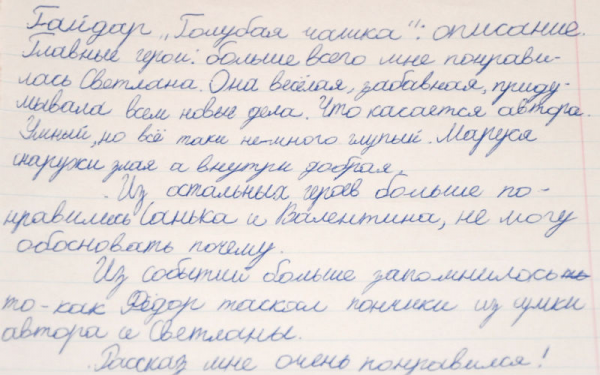 Гайдар „Голубая чашка“: описание.
Главные герои: больше всего мне понрави-
лась Светлана. Она весёлая, забавная, приду-
мывала всем новые дела. Что касается автора.
Умный, но всё таки не-много глупый. Маруся
снаружи злая а внутри добрая.
Из остальных героев больше по-
нравились Санька и Валентина, не могу
обосновать почему.
Из событий больше запомнилось
то-как Фёдор таскал пончики из сумки
автора и Светланы.
Рассказ мне очень понравился!